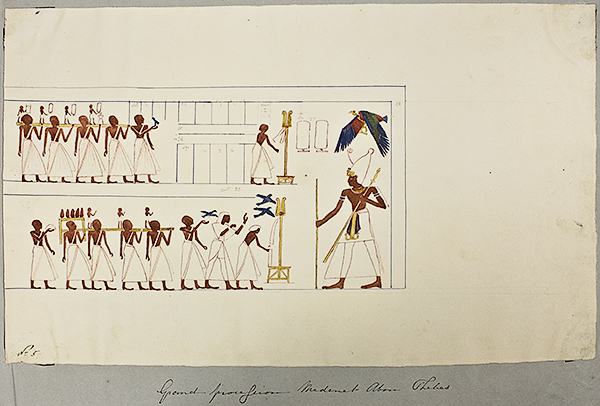 No 5
Grand procession Medinet Abou Thebes